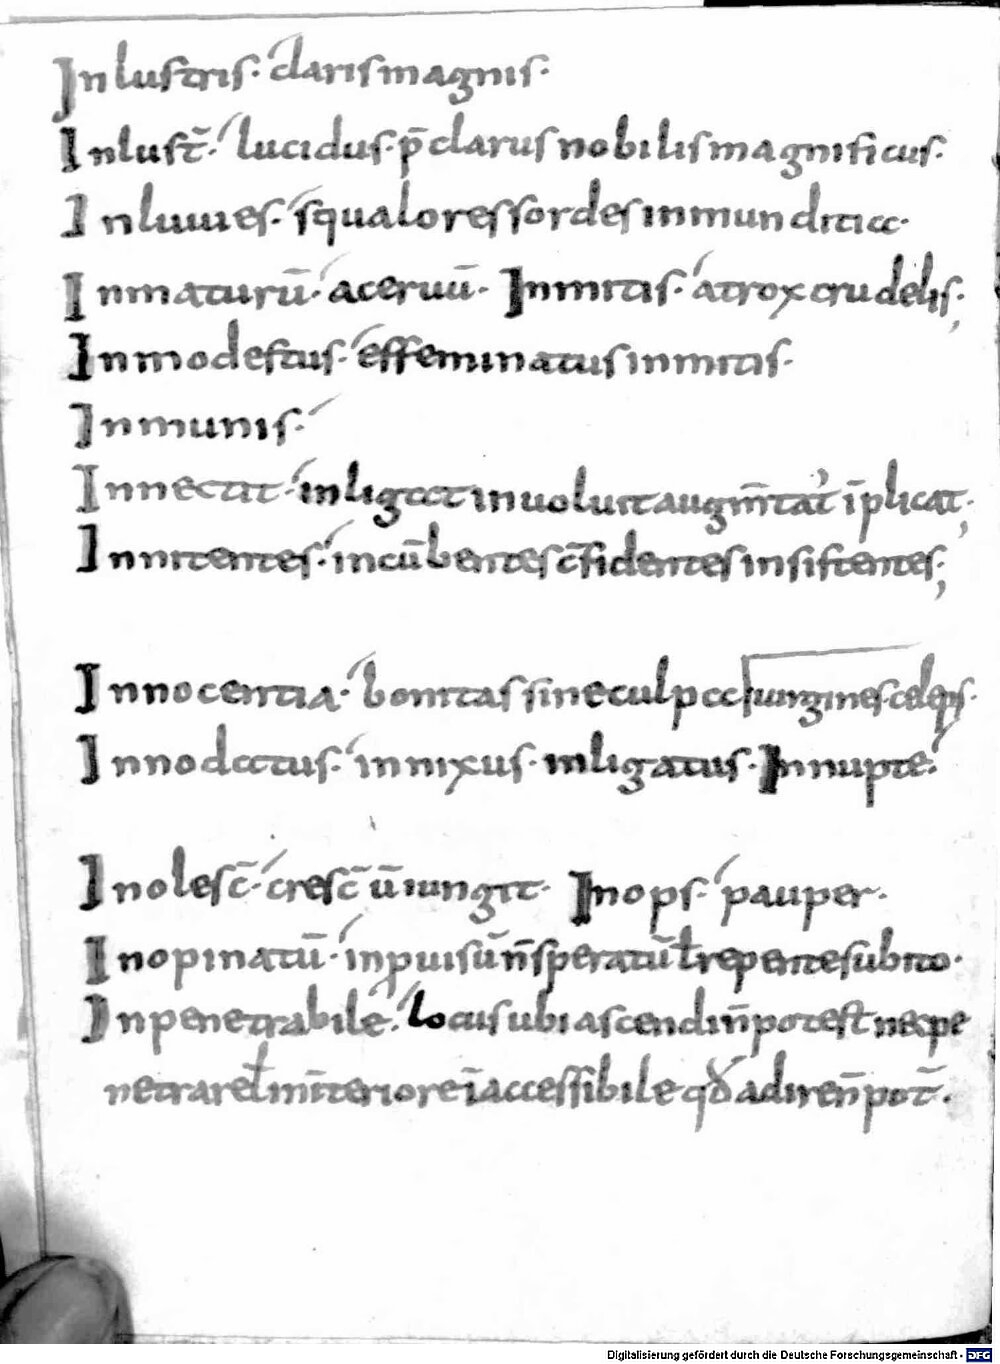 Inlustris· claris magnis·
Inlust̄· lucidus· p̄clarus nobilis magnificus·
Inluuies· squalores sordes inmunditia·
Inmaturū· aceruū· Inmitis· atrox crudelis;
Inmodestus· effeminatus inmitis·
Inmunis·
Innectit· inligat inuoluit augm̄tat' īplicat;
Innitentes· incūbentes c̄fidentes insistentes;
Innocentia· bonitas sine culpa uirgines celeps·
Innodatus· innixus· inligatus· Innupte·
Inolesc̄· cresc̄ ū iungit· Inops· pauper·
Inopinatū· inpuisū n̄ speratū ł repente subito·
Inpenetrabile· locus ubi ascendi n̄ potest neq; pe
netrare ł in īteriore īaccessibile qđ adire n̄ pot̄·
Digitalisierung gefördert durch die Deutsche Forschungsgemeinschaft - DFG